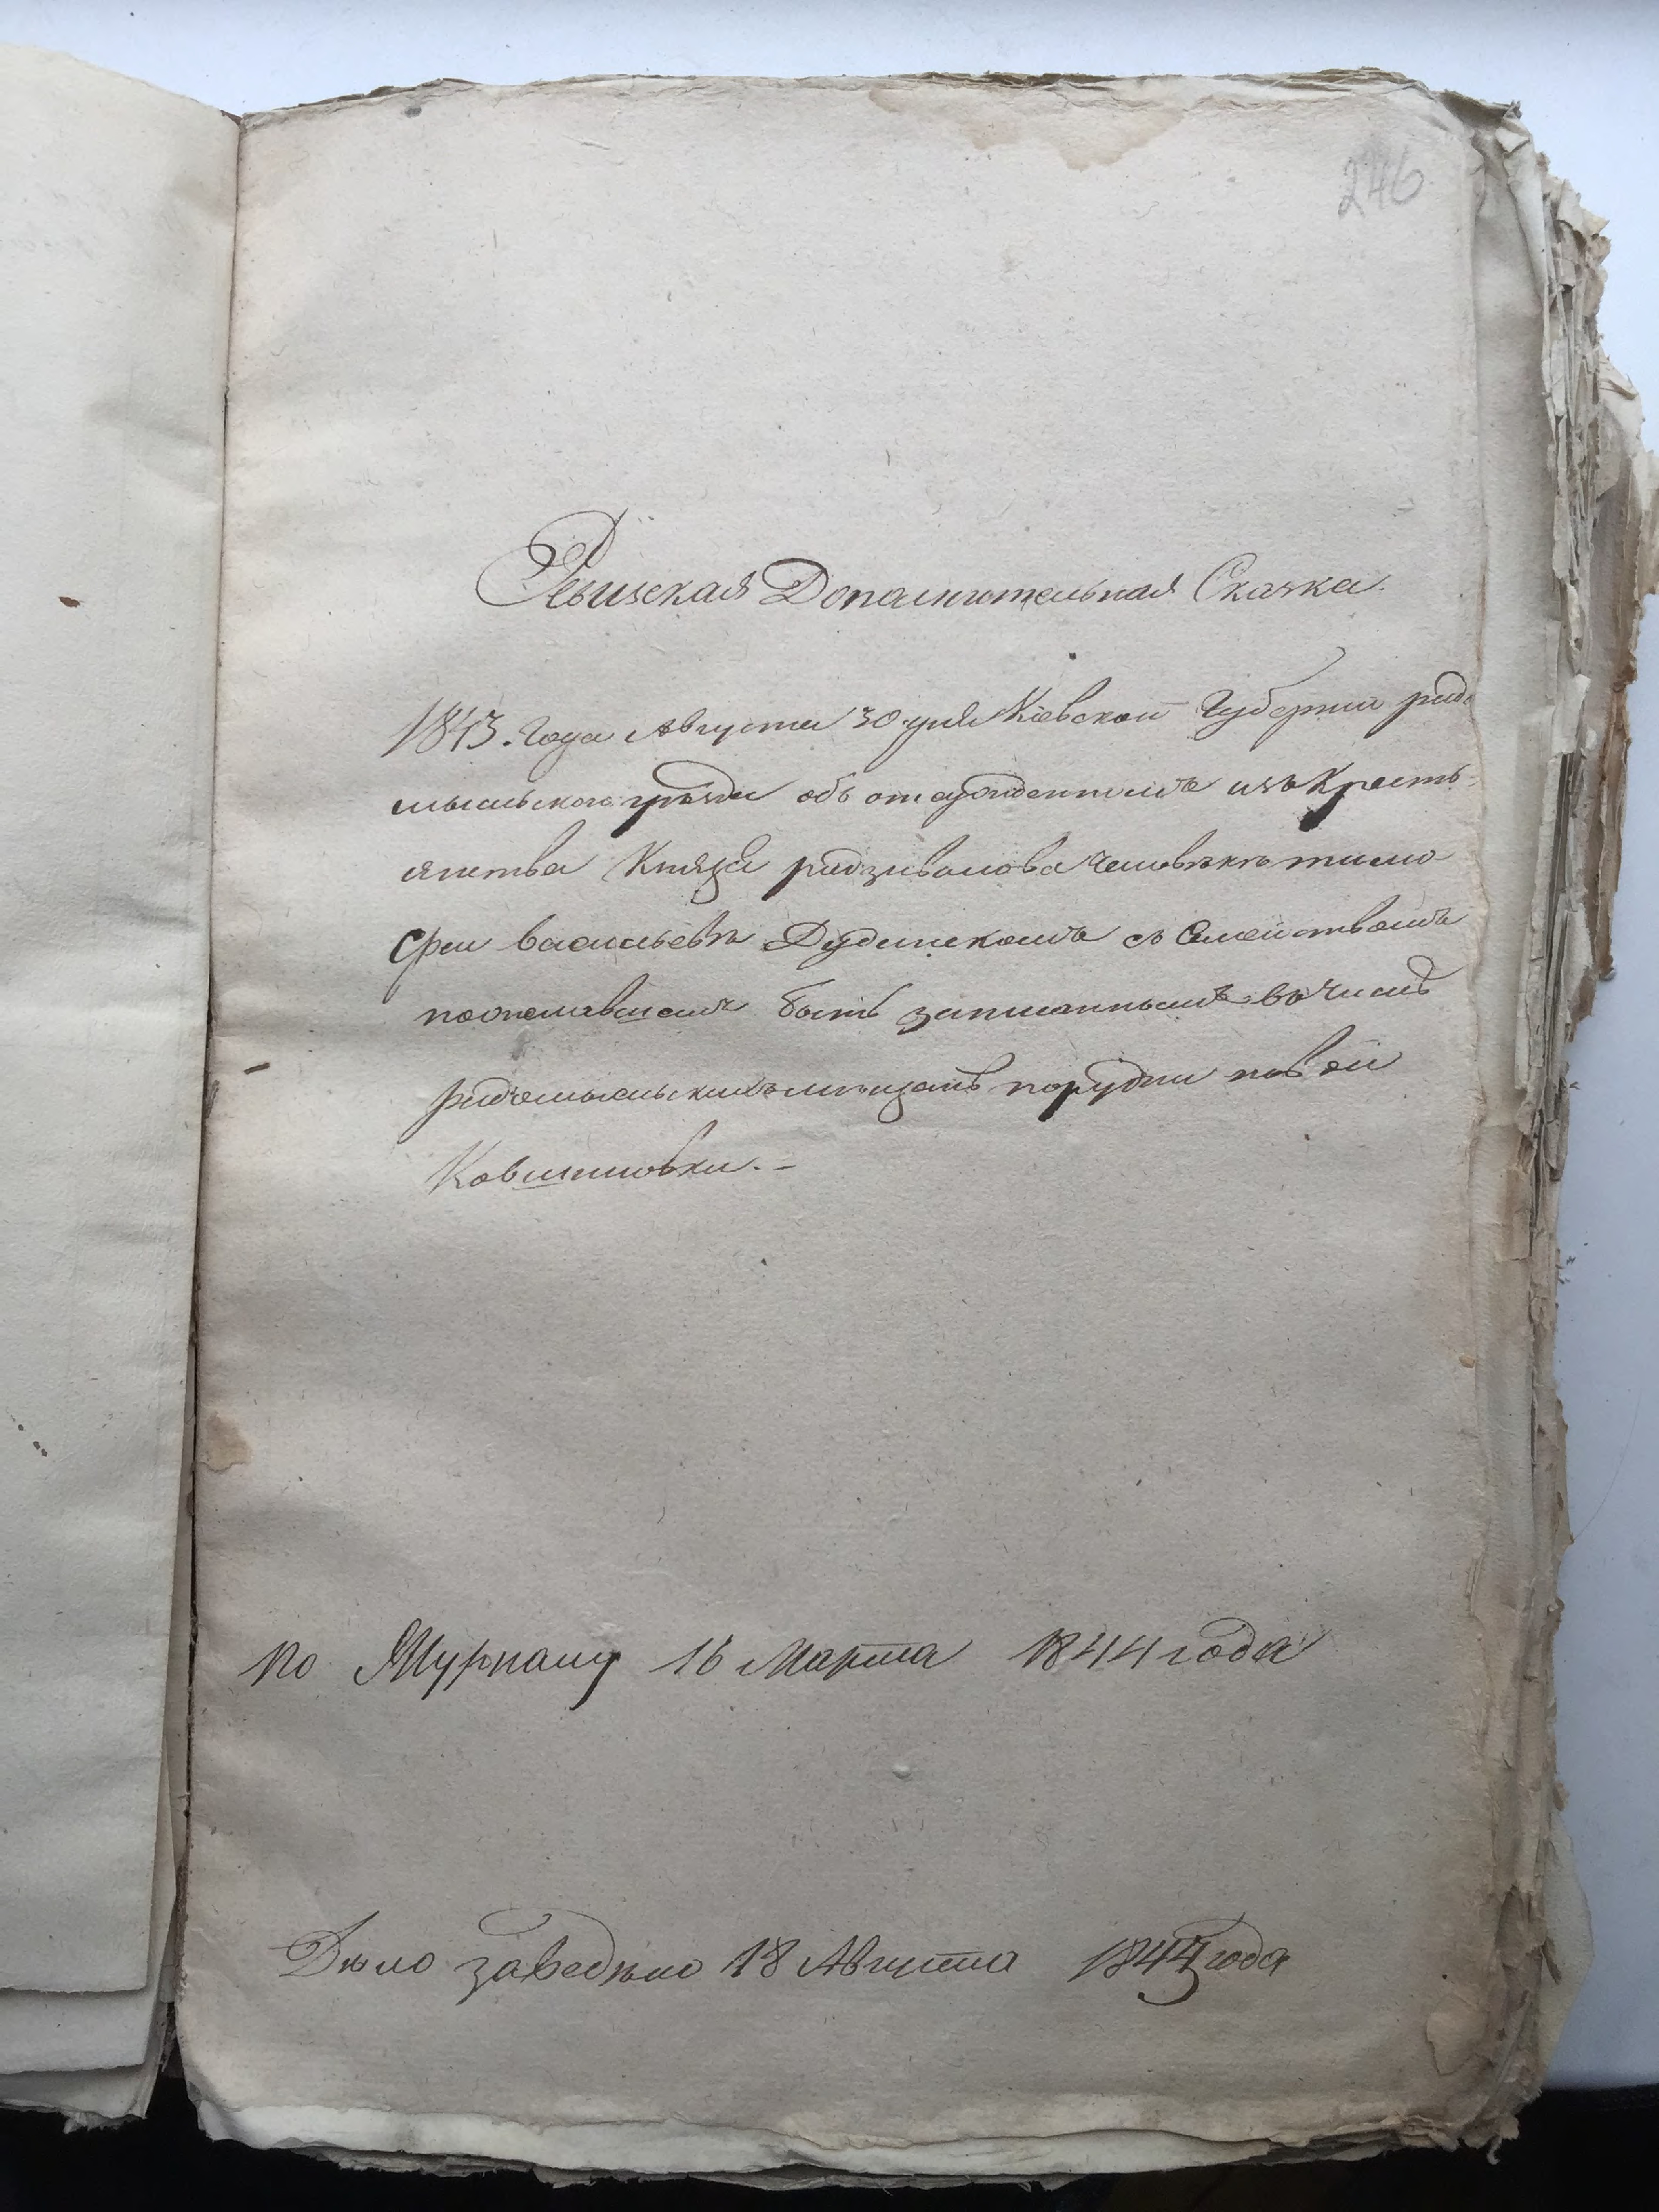 246
Ревизская Дополнительная Сказка.
1843. Года Августа 30 дня Кіевской Губерніи радо
мысльского уѣзда объ отсужденномъ изъ Крестъ
янства Князя радзивилова человѣкѣ тимо
феи васильевѣ Дудинскомъ съ Семействомъ
пожелавшимъ быть записаннымъ въ Число
радомысльскихъ мещанъ порудни новой
Ковшиловки. —
по Журналу 16 Марта 1844 года
Дѣло заведѣно 18 Августа 1844 года